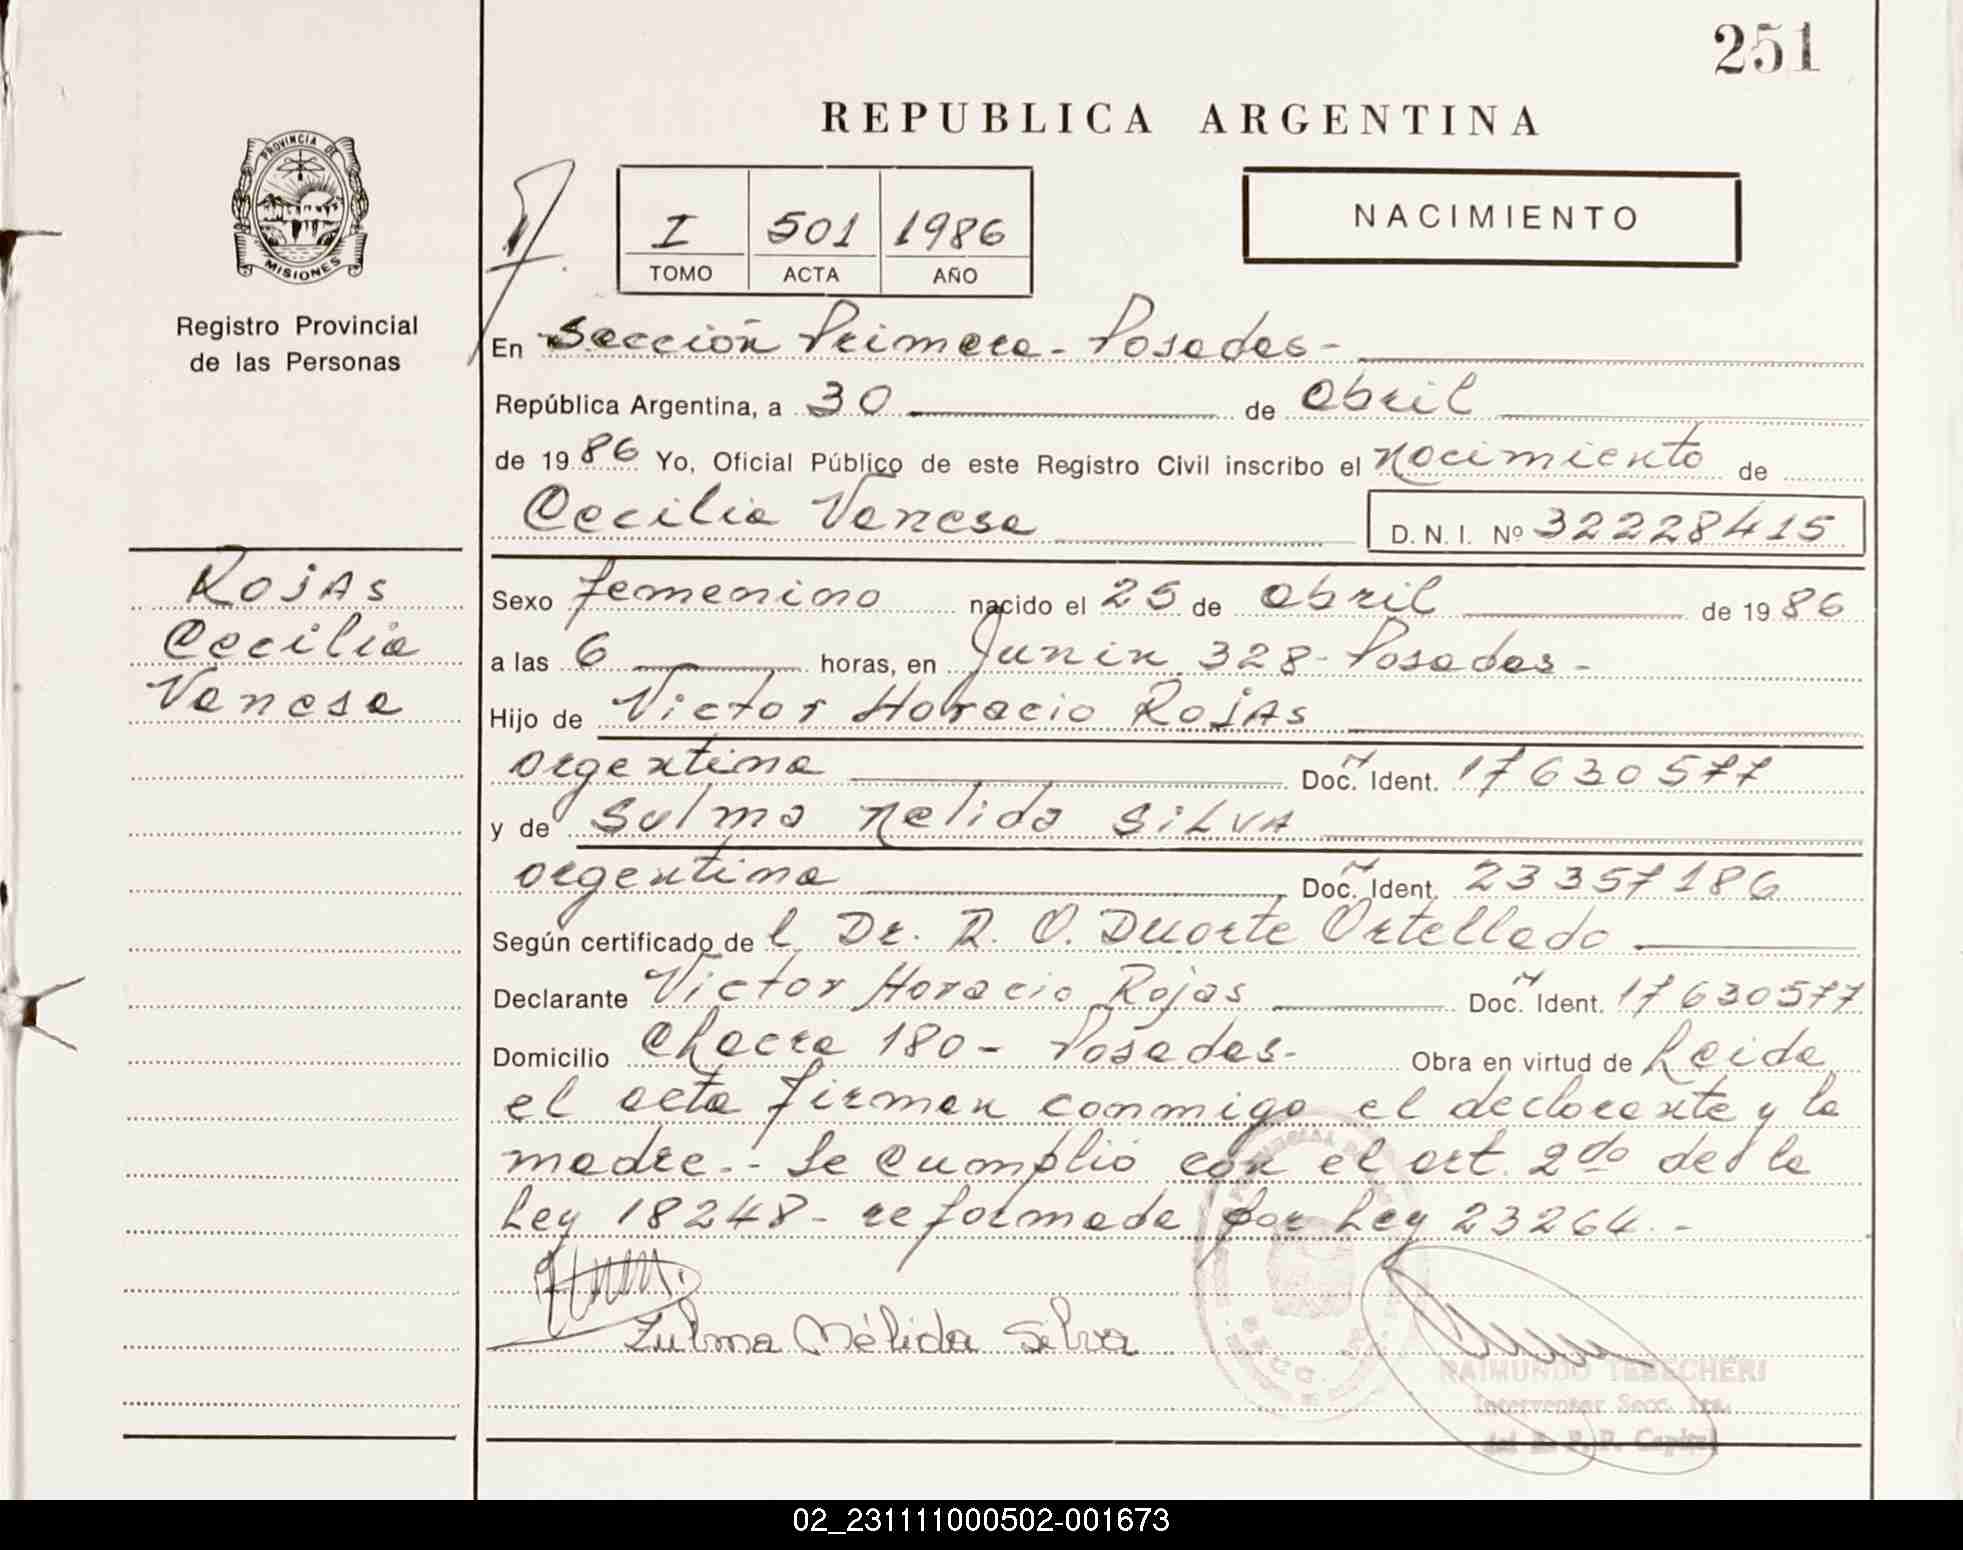 251
REPUBLICA ARGENTINA
PROVINCIA DE
MISIONES
Registro Provincial
de las Personas
I 501 1986
TOMO ACTA AÑO
NACIMIENTO
En Sección Primera - Posadas -
República Argentina, a 30 de abril
de 1986 Yo, Oficial Público de este Registro Civil inscribo el nacimiento de
Cecilia Vanesa D. N. I. Nº 32228415
Rojas
Cecilia
Vanesa
Sexo femenino nacido el 25 de abril de 1986
a las 6 horas, en Junin 328 - Posadas -
Hijo de Victor Horacio Rojas
argentina Doc. Ident. 17630577
y de Sulma Nelida SiLVA
argentina Doc. Ident. 23357186
Según certificado de l Dr. R. O. Duarte Ortellado
Declarante Victor Horacio Rojas Doc. Ident. 17630577
Domicilio Chacra 180 - Posadas - Obra en virtud de Leida
el acta firman conmigo el declarante y la
madre. - Se cumplió con el art. 2do de la
Ley 18248 - reformada por Ley 23264. -
Zulma Nélida Silva
RAIMUNDO TEBECHERI
Interventor Secc. 1ra.
del R. P. P. Capital
02_231111000502-001673